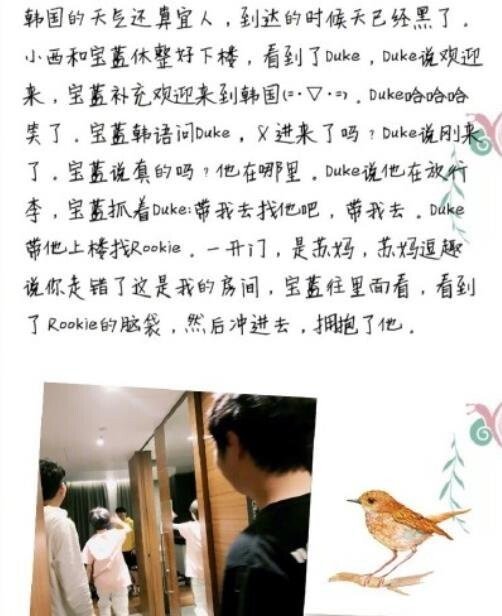 韩国的天气还真宜人，到达的时候天已经黑了。
小西和宝蓝休整好下楼，看到了Duke，Duke说欢迎
来，宝蓝补充欢迎来到韩国(=·▽·=)。Duke哈哈哈
笑了。宝蓝韩语问Duke，义进来了吗？Duke说刚来
了。宝蓝说真的吗？他在哪里。Duke说他在放行
李，宝蓝抓着Duke:带我去找他吧，带我去。Duke
带他上楼找Rookie。一开门，是苏妈，苏妈逗趣
说你走错了这是我的房间，宝蓝往里面看，看到
了Rookie的脑袋，然后冲进去，拥抱了他。